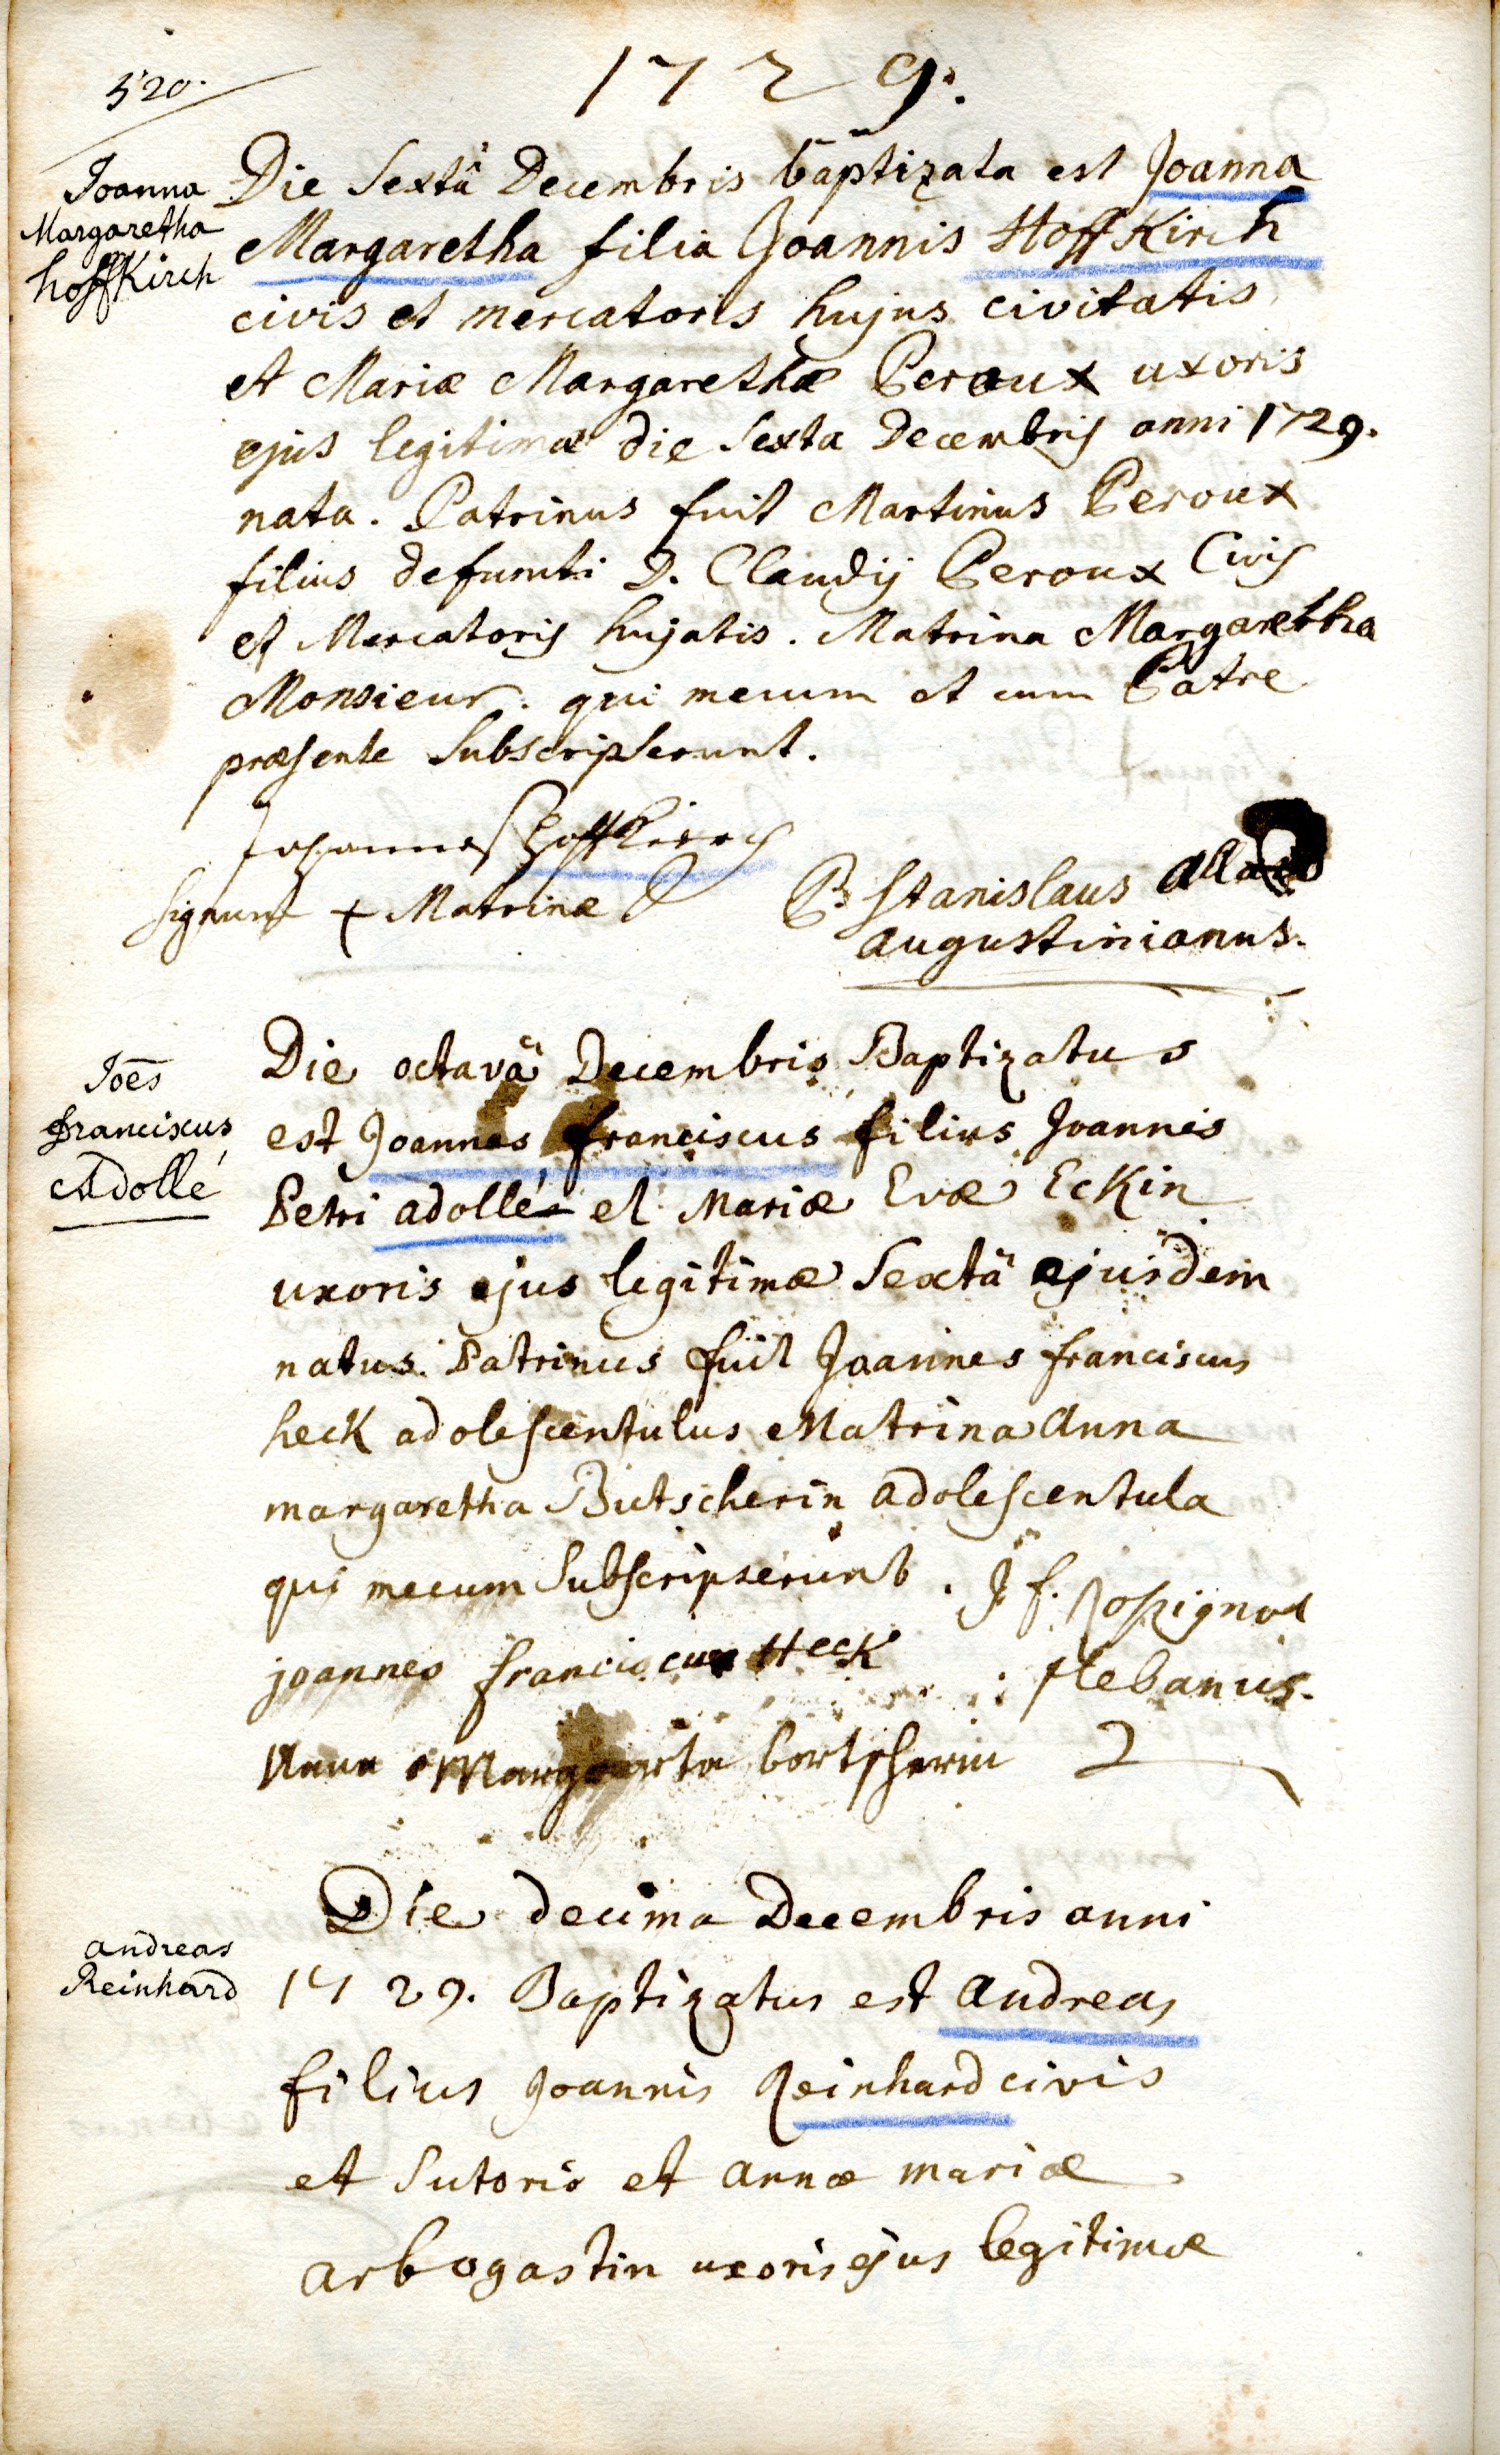 520.
1729.
Joanna
Margaretha
hoffKirch
Die Sextâ Decembris baptizata est Joanna
Margaretha filia Joannis HoffKirch
civis et mercatoris hujus civitatis
et Mariæ Margarethæ Peroux uxoris
ejus legitimæ die Sexta Decembris anni 1729.
nata. Patrinus fuit Martinus Peroux
filius defuncti D. Claudij Peroux Civis
et Mercatoris hujatis. Matrina Margaretha
Monsieur. qui mecum et cum Patre
præsente Subscripserunt.
Johannes Hoffkirch
Signum + Matrinæ
P Stanislaus
augustinianus.
Joēs
franciscus
Adollé
Die octavâ Decembris Baptizatus
est Joannes franciscus filius Joannis
Petri adollé et Mariæ Evæ EcKin
uxoris ejus legitimæ Sextâ ejusdem
natus. Patrinus fuit Joannes franciscus
hecK adolescentulus Matrina Anna
margaretha Butscherin adolescentula
qui mecum Subscripserunt. J f. Rossignol
joannes franciscus HecK plebanus.
Anna Margareta bortscherin
andreas
Reinhard
Die decima Decembris anni
1729. Baptizatus est andreas
filius Joannis Reinhard civis
et Sutoris et annæ mariæ
arbogastin uxoris ejus legitimæ